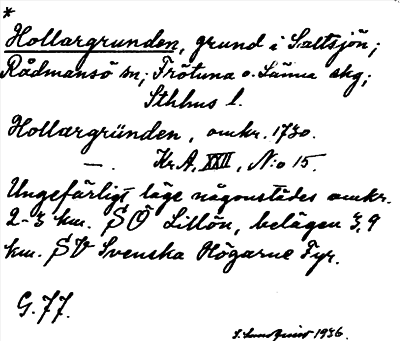 *
Hollargrunden, grund i Saltsjön;
Rådmansö sn; Frötuna o. Länna skg;
Sthlms l.
Hollargründen, omkr. 1730.
—. Kr.A, XXII, N:o 15.
Ungefärligt läge någonstädes omkr.
2-3 km. SÖ Lillön, belägen 3,9
km. SV Svenska Högarne Fyr.
G. 77.
1936.